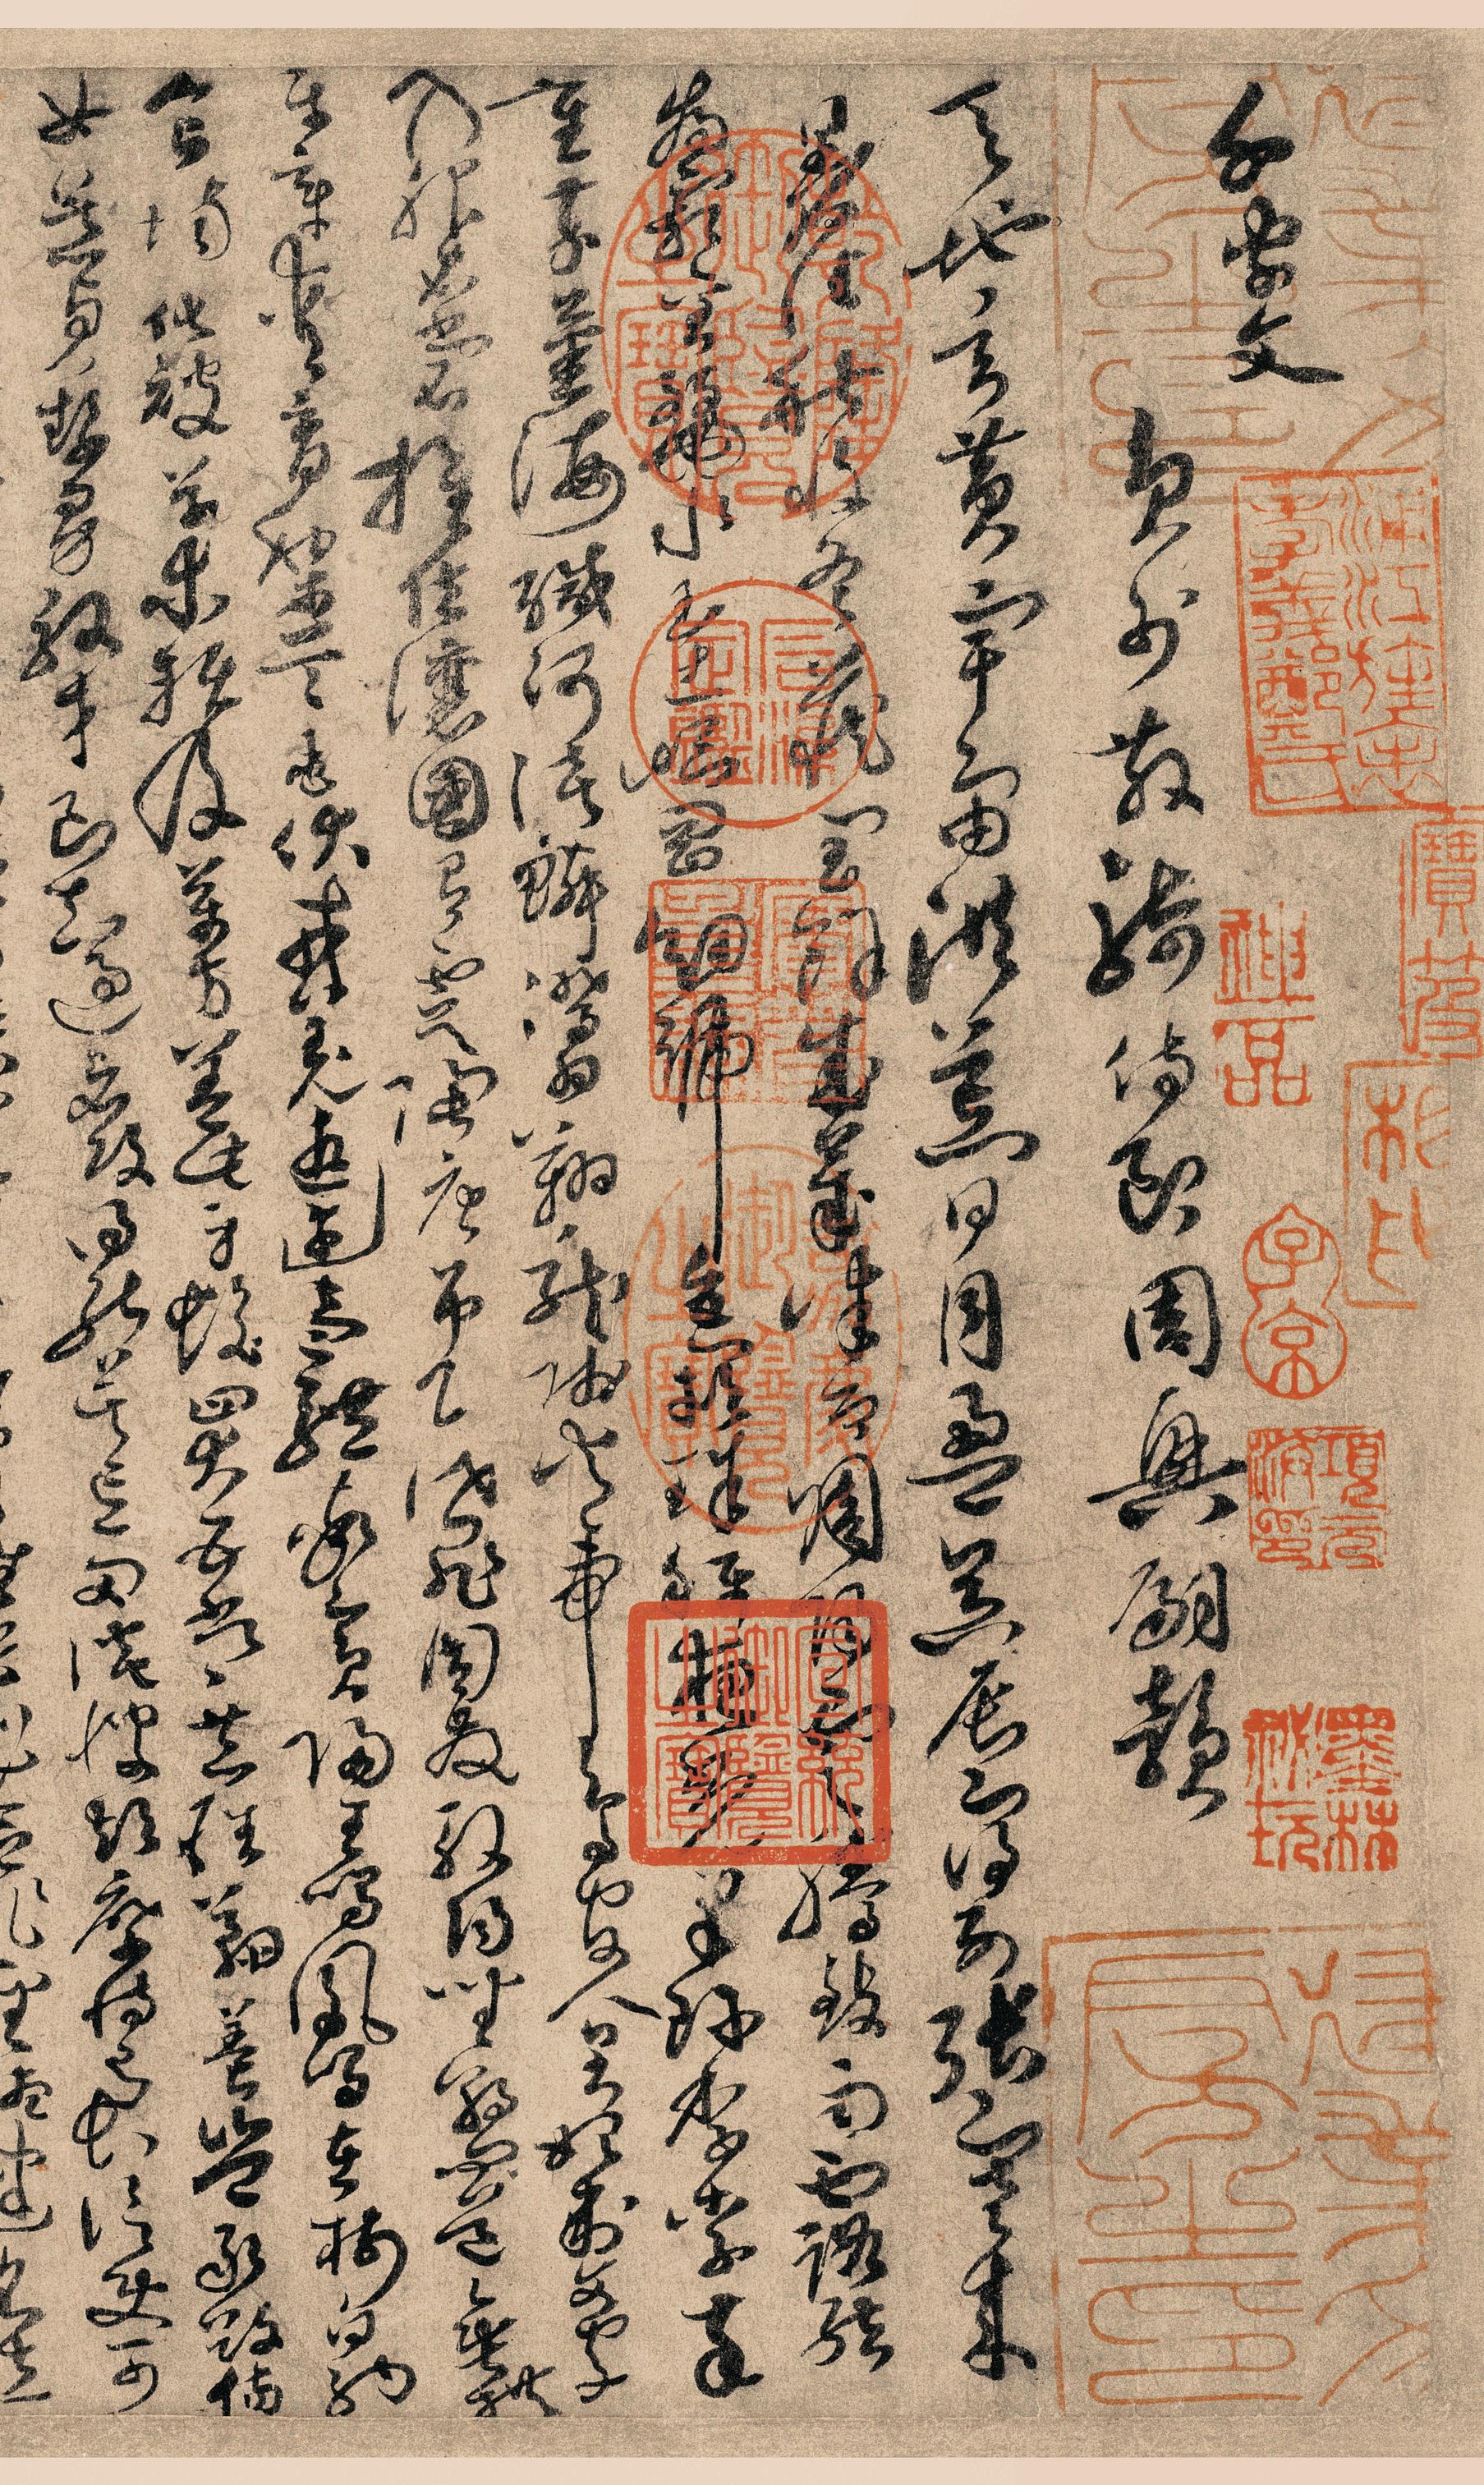 千字文
員外散騎侍郎周興嗣韻
天地玄黃宇宙洪荒日月盈昃辰宿列張寒來
暑往秋收冬藏閏餘成歲律召調陽雲騰致雨露結
為霜金生麗水玉出崑岡劍號巨闕珠稱夜光菓珍李柰菜
重芥薑海鹹河淡鱗潛羽翔龍師火帝鳥官人皇始制文字
乃服衣裳推位讓國有虞陶唐弔民伐罪周發殷湯坐朝問道垂拱
平章愛育黎首臣伏戎羌遐邇壹體率賓歸王鳴鳳在樹白駒
食場化被草木賴及萬方蓋此身髮四大五常恭惟鞠養豈敢毀傷
女慕貞潔男效才良知過必改得能莫忘罔談彼短靡恃己長信使可
念作聖德建名立
神品
子京
項元汴印
墨林秘玩
乾隆御覽之寶
石渠定鑑
寶笈重編
嘉慶御覽之寶
宣統御覽之寶